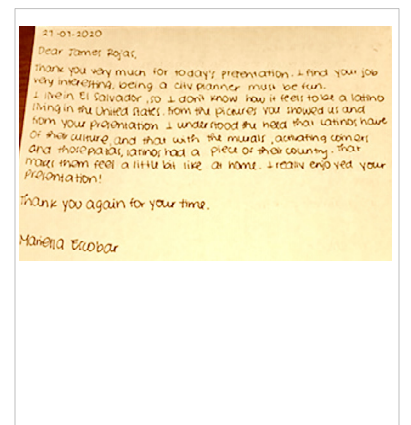 21-01-2020
Dear James Rojas,
Thank you very much for today's presentation. I find your job
very interesting, being a city planner must be fun.
I live in El Salvador, so I don't know how it feels to be a latino
living in the United States. From the pictures you showed us and
from your presentation I understood the need that Latinos have
of their culture, and that with the murals, activating corners
and those palas, latinos had a piece of their country. That
makes them feel a little bit like at home. I really enjoyed your
presentation!
Thank you again for your time.
Mariella Escobar